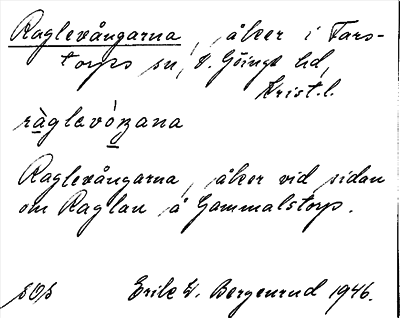 Raglevångarna, åker i Fars-
torps sn, V. Göinge hd,
Krist. l.
ràglevóŋana
Raglevångarna, åker vid sidan
om Raglan å Gammalstorp.
sOs Erik W. Bergenrud 1946.